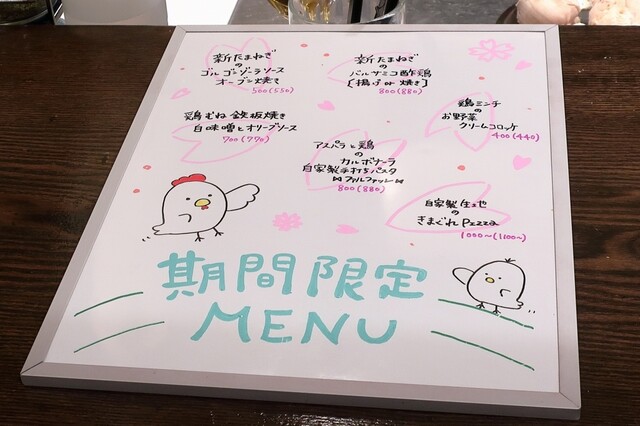 新たまねぎ
の
ゴルゴンゾーラソース
オーブン焼き
500(550)
新たまねぎ
の
バルサミコ酢鶏
[揚げor焼き]
800(880)
鶏むね鉄板焼き
白味噌とオリーブソース
700(770)
鶏ミンチ
の
お野菜
クリームコロッケ
400(440)
アスパラと鶏
の
カルボナーラ
自家製手打ちパスタ
⋈ファルファッレ⋈
800(880)
自家製生地
の
きまぐれPizza
1000〜(1100〜)
期間限定
MENU